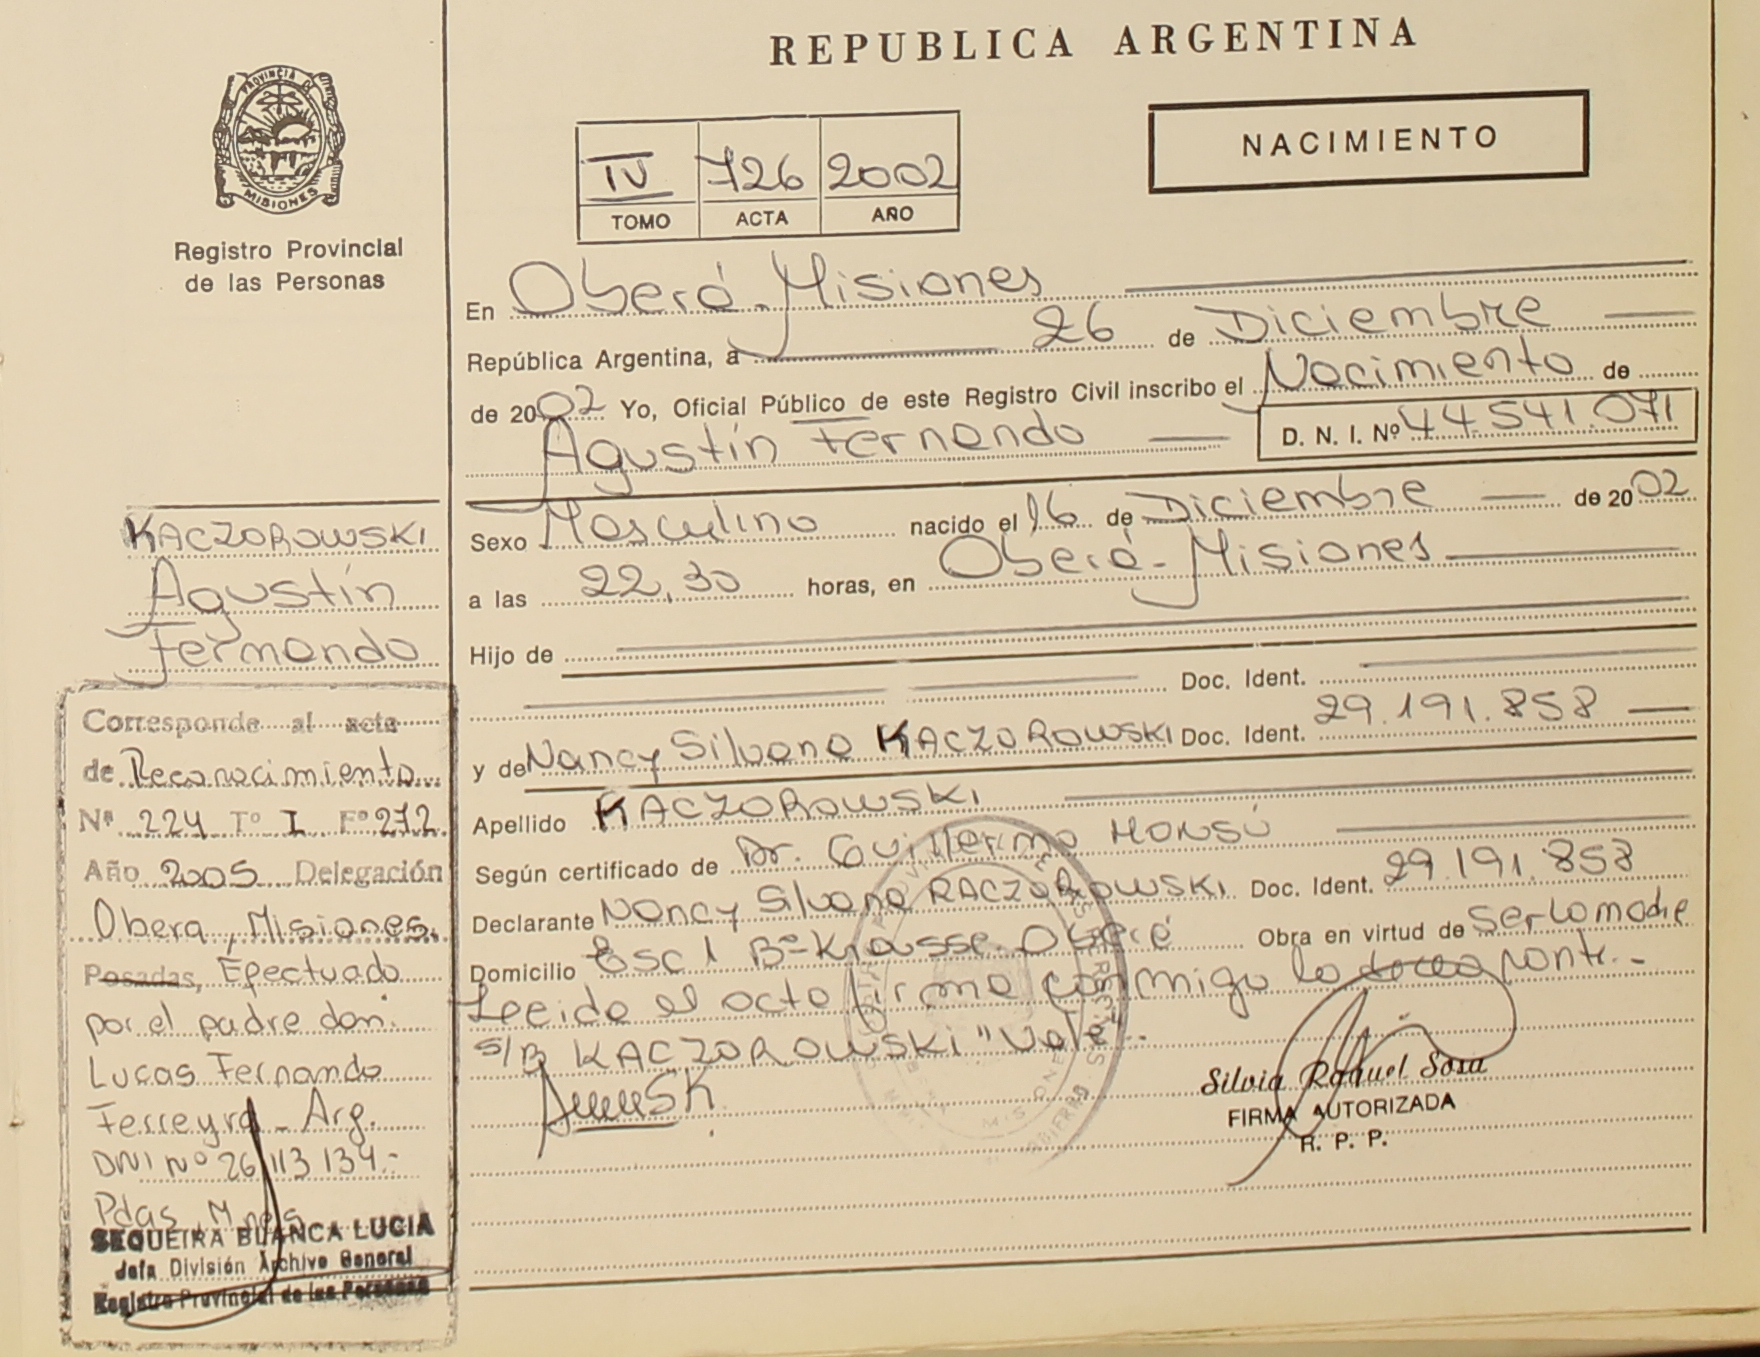 REPUBLICA ARGENTINA
PROVINCIA DE
MISIONES
Registro Provincial
de las Personas
NACIMIENTO
IV 726 2002
TOMO ACTA AÑO
En Oberá-Misiones
República Argentina, a 26 de Diciembre
de 2002 Yo, Oficial Público de este Registro Civil inscribo el Nacimiento de
Agustín Fernando D. N. I. Nº 44.541.071
Sexo Masculino nacido el 16 de Diciembre de 2002
a las 22,30 horas, en Oberá-Misiones
Hijo de
Doc. Ident.
y de Nancy Silvana KACZOROWSKI Doc. Ident. 29.191.858
Apellido KACZOROWSKI
Según certificado de Dr. Guillermo MONSÚ
Declarante Nancy Silvana RACZOROWSKI Doc. Ident. 29.191.858
Domicilio Esc 1 Bº Krausse-Oberá Obra en virtud de Ser la madre
Leeida el acta firma conmigo la
S/B KACZOROWSKI "Vale".
Silvia Raquel Sosa
FIRMA AUTORIZADA
R. P. P.
KACZOROWSKI
Agustín
Fernando
Corresponde al acta
de Reconocimiento
Nº 224 Tº I Fº 272
Año 2005 Delegación
Obera, Misiones.
Posadas, Efectuado
por el padre don:
Lucas Fernando
Ferreyra - Arg.
DNI Nº 26 113 134.-
Pdas, Mnes
SEQUEIRA BLANCA LUCIA
Jefa División Archivo General
Registro Provincial de las Personas